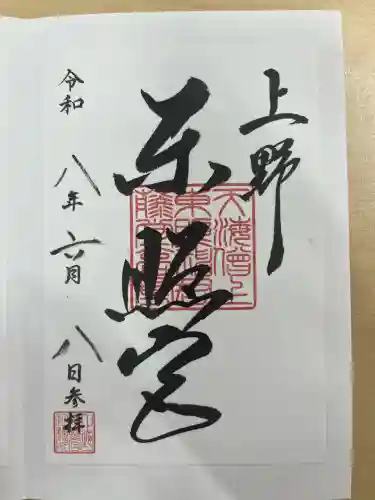 上野
东照宮
令和八年六月八日参拝